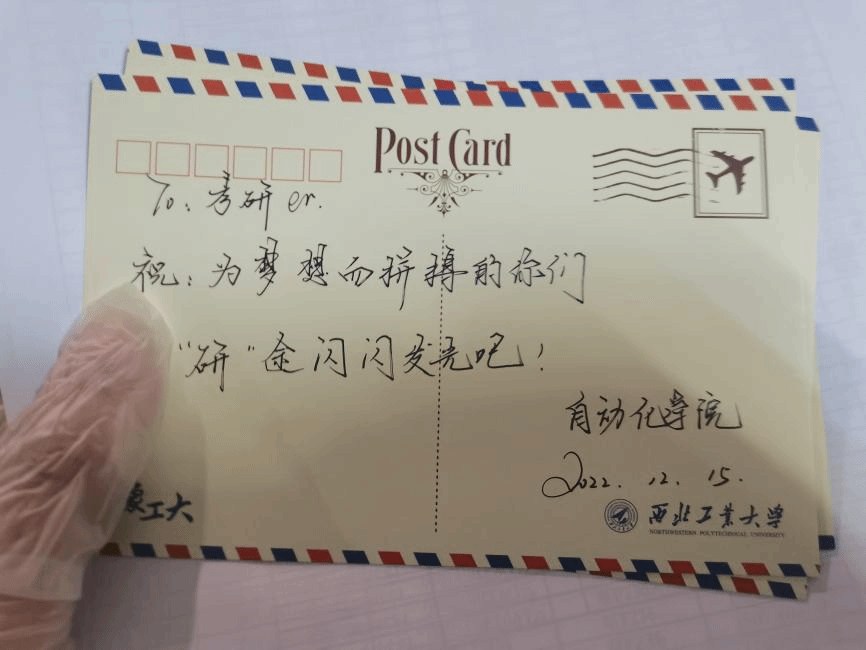 Post Card
To: 考研er.
祝:为梦想而拼搏的你们
“研”途闪闪发光吧!
自动化学院
2022.12.15.
工大
西北工业大学
NORTHWESTERN POLYTECHNICAL UNIVERSITY